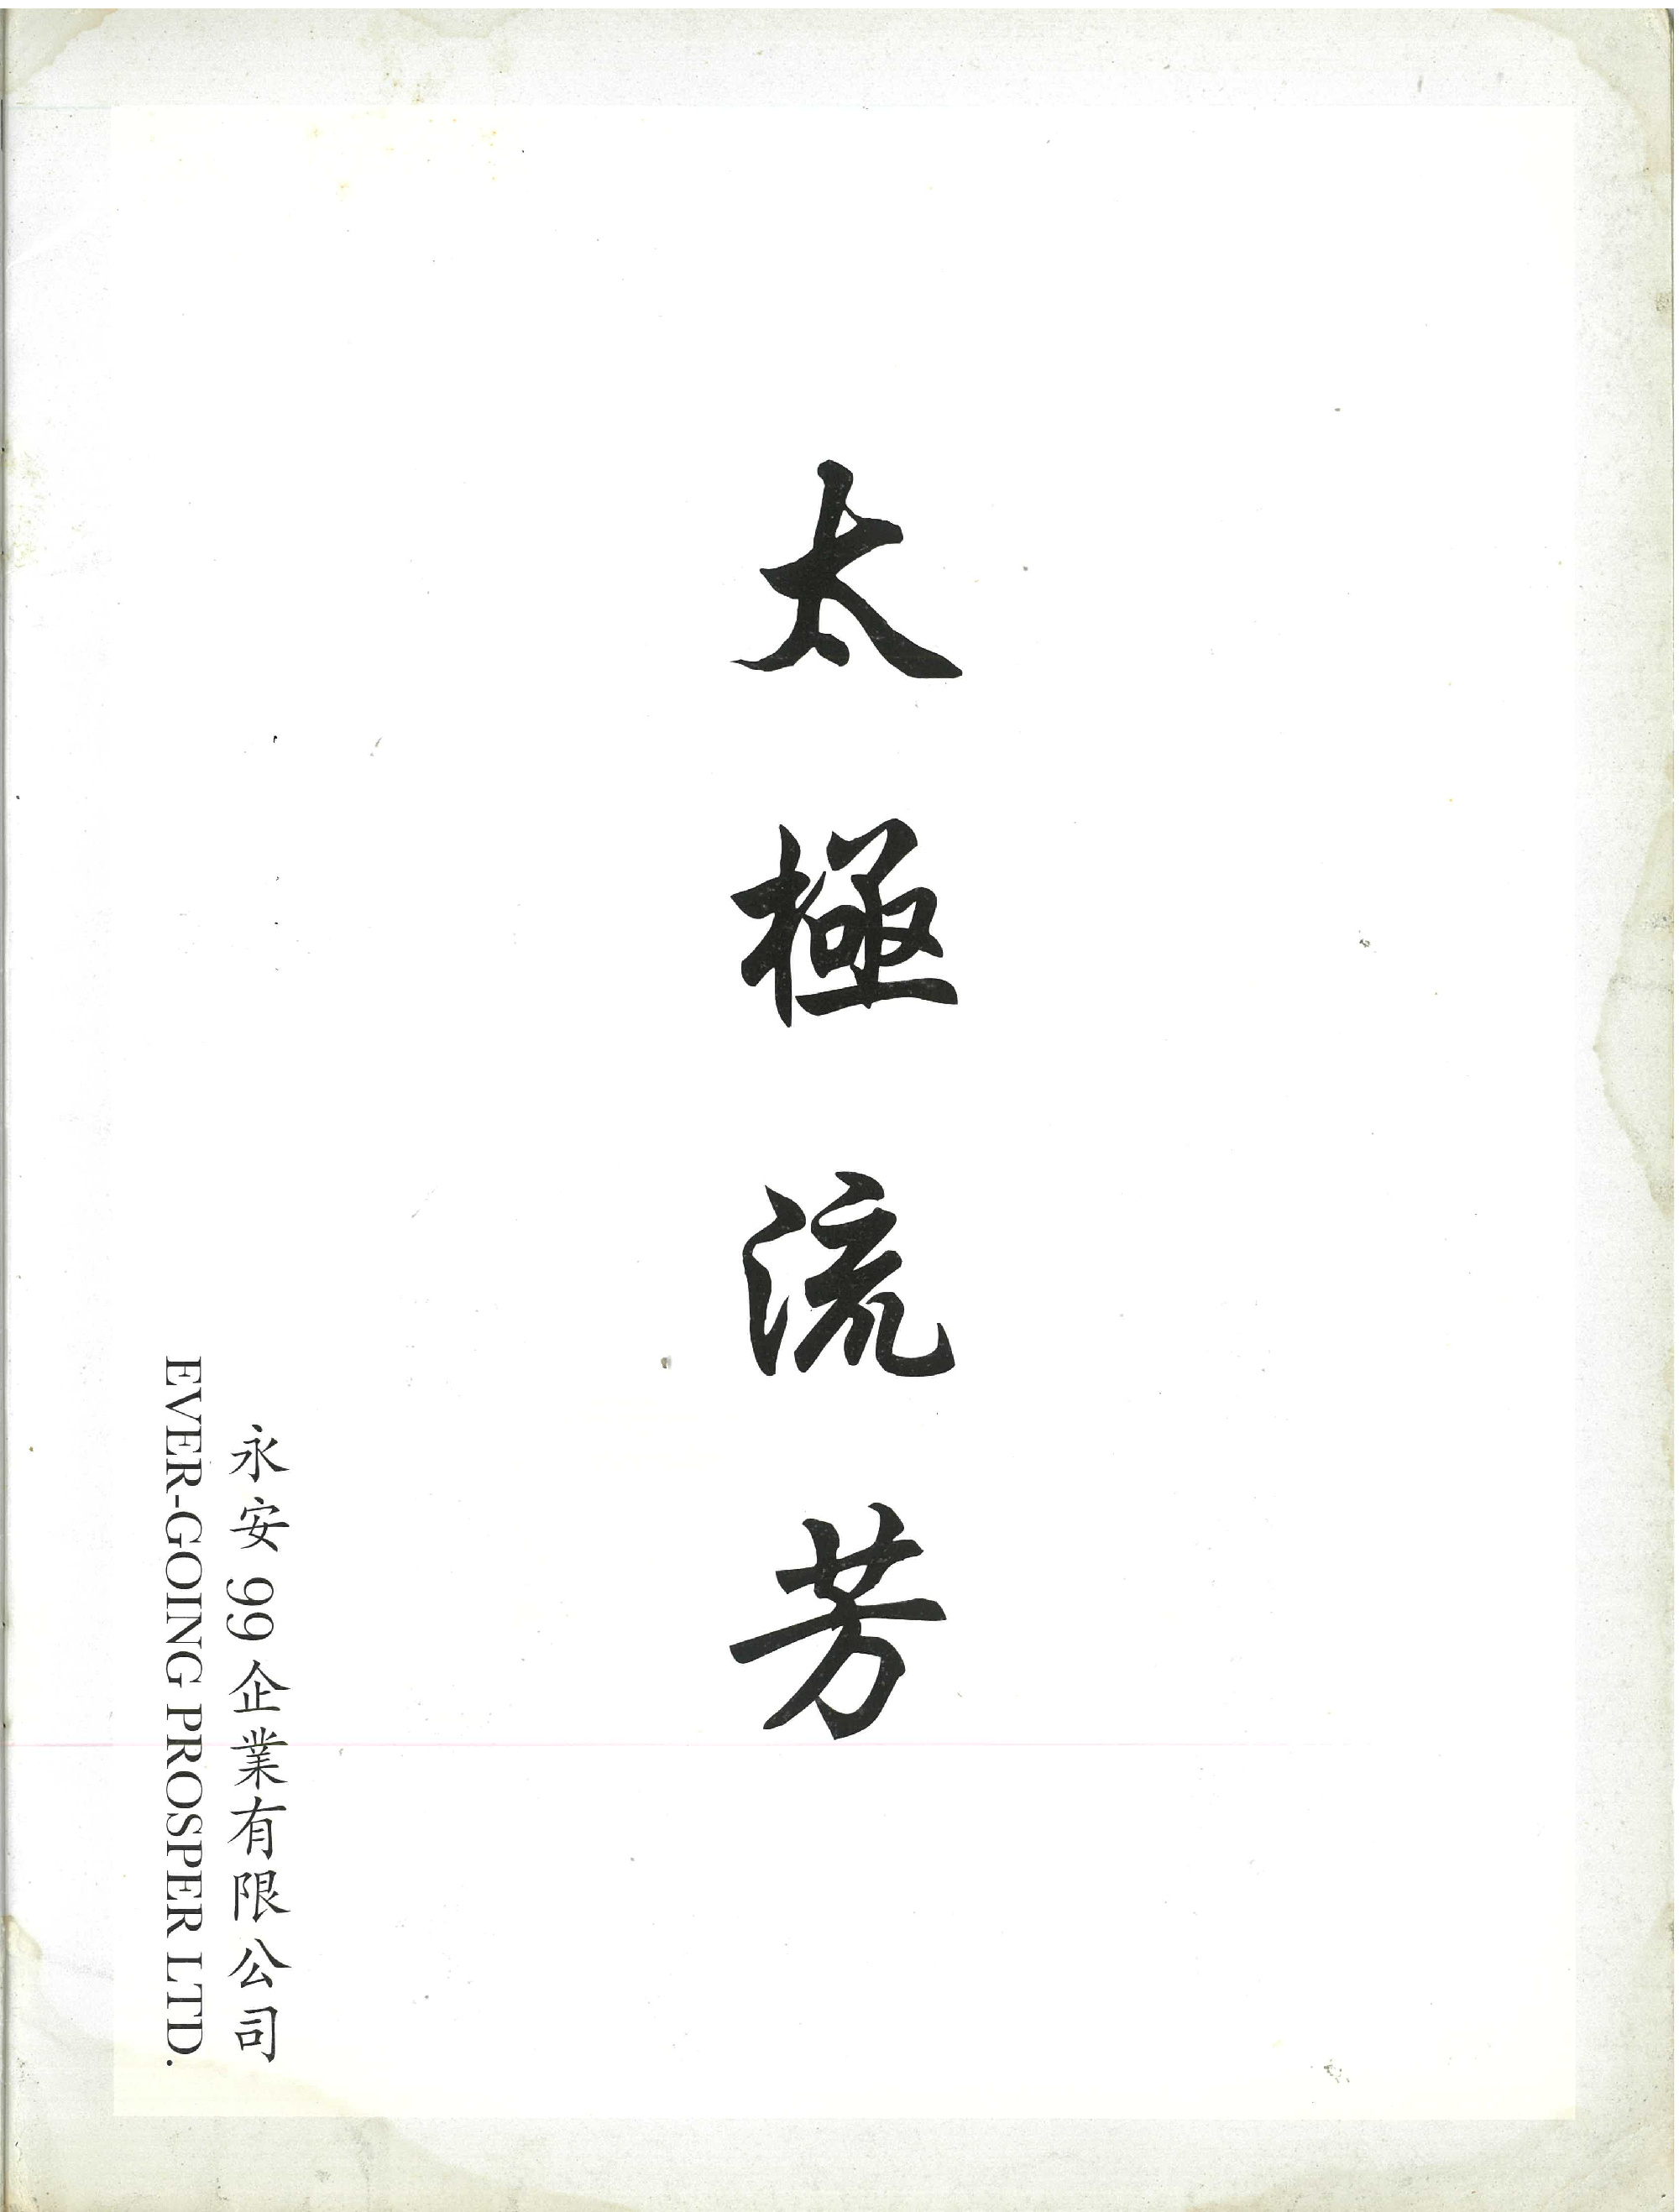 太極流芳
永安99企業有限公司
EVER-GOING PROSPER LTD.